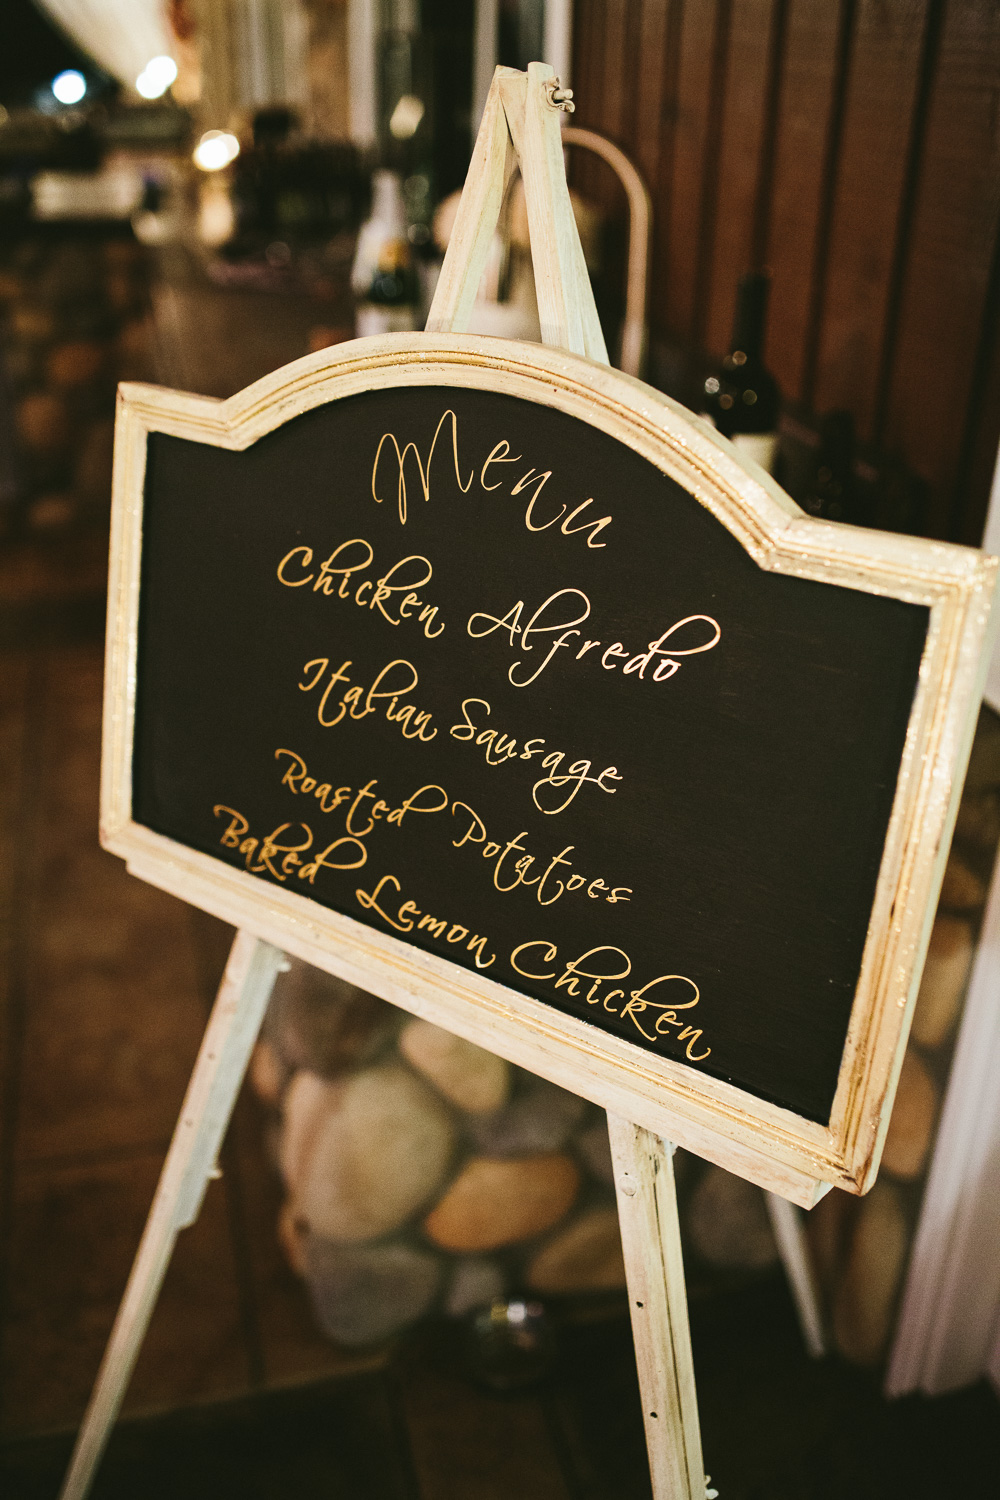 Menu
Chicken Alfredo
Italian Sausage
Roasted Potatoes
Baked Lemon Chicken